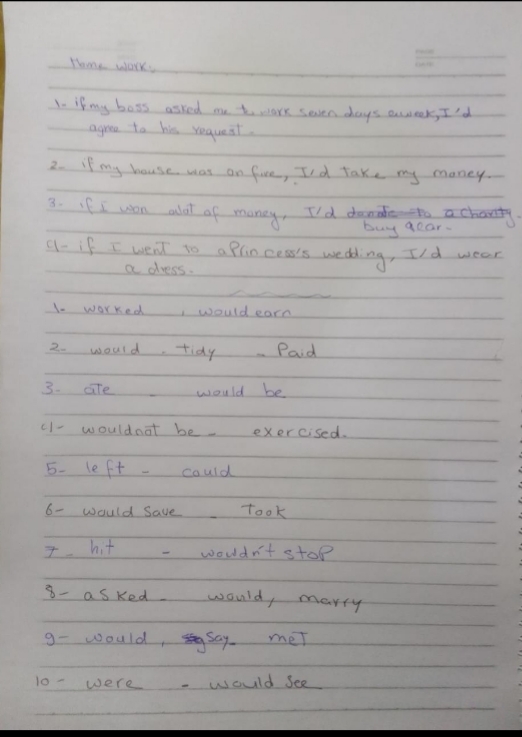 Home work:
1- if my boss asked me to work seven days aweek, I'd
agree to his request.
2- if my house was on fire, I'd take my money.
3- if I won alot of money, I'd donate to a charity.
buy acar.
4- if I went to aprincess's wedding, I'd wear
a dress.
1- worked , would earn
2- would - tidy - Paid
3- ate - would be
4- wouldnot be - exercised.
5- left - could
6- would save - Took
7- hit - wouldn't stop
8- asked - would, marry
9- would, say - meT
10- were - would see